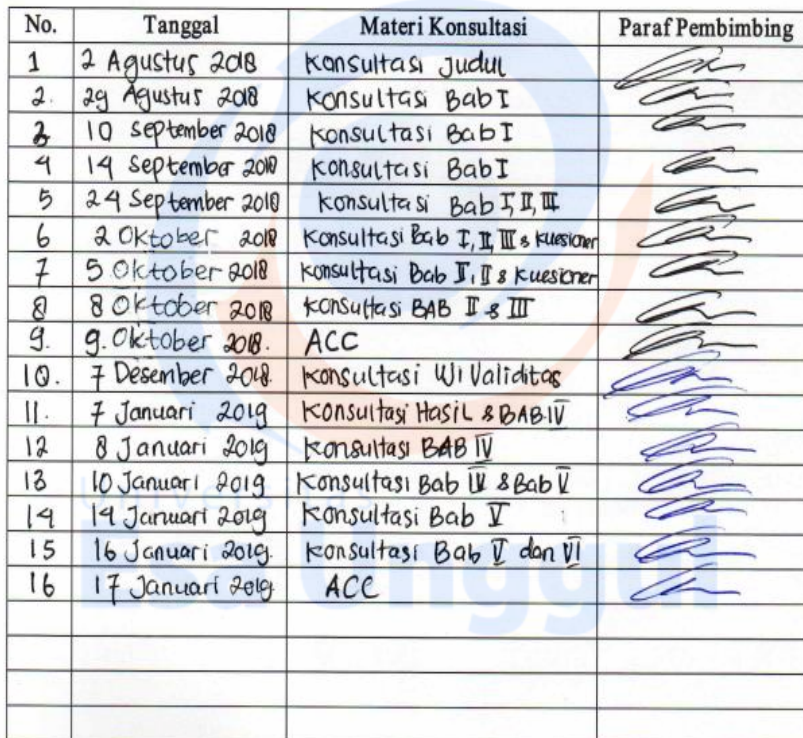 No. Tanggal Materi Konsultasi Paraf Pembimbing
1 2 Agustus 2018 Konsultasi Judul
2. 29 Agustus 2018 Konsultasi Bab I
3 10 September 2018 Konsultasi Bab I
4 14 September 2018 Konsultasi Bab I
5 24 September 2018 Konsultasi Bab I, II, III
6 2 Oktober 2018 Konsultasi Bab I, II, III & Kuesioner
7 5 Oktober 2018 Konsultasi Bab I, II & Kuesioner
8 8 Oktober 2018 Konsultasi BAB II & III
9. 9. Oktober 2018. ACC
10. 7 Desember 2018. Konsultasi Uji Validitas
11. 7 Januari 2019 Konsultasi Hasil & BAB IV
12 8 Januari 2019 Konsultasi BAB IV
13 10 Januari 2019 Konsultasi Bab IV & Bab V
14 14 Januari 2019 Konsultasi Bab V
15 16 Januari 2019. Konsultasi Bab V dan VI
16 17 Januari 2019 ACC
Universitas
Esa Unggul